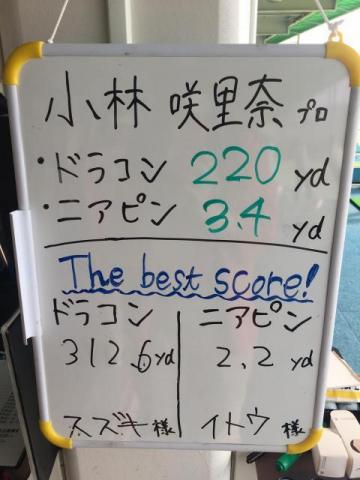 小林 咲里奈 プロ
・ドラコン 220 yd
・ニアピン 3.4 yd
The best score!
ドラコン
312.6yd
スズキ様
ニアピン
2.2 yd
イトウ様